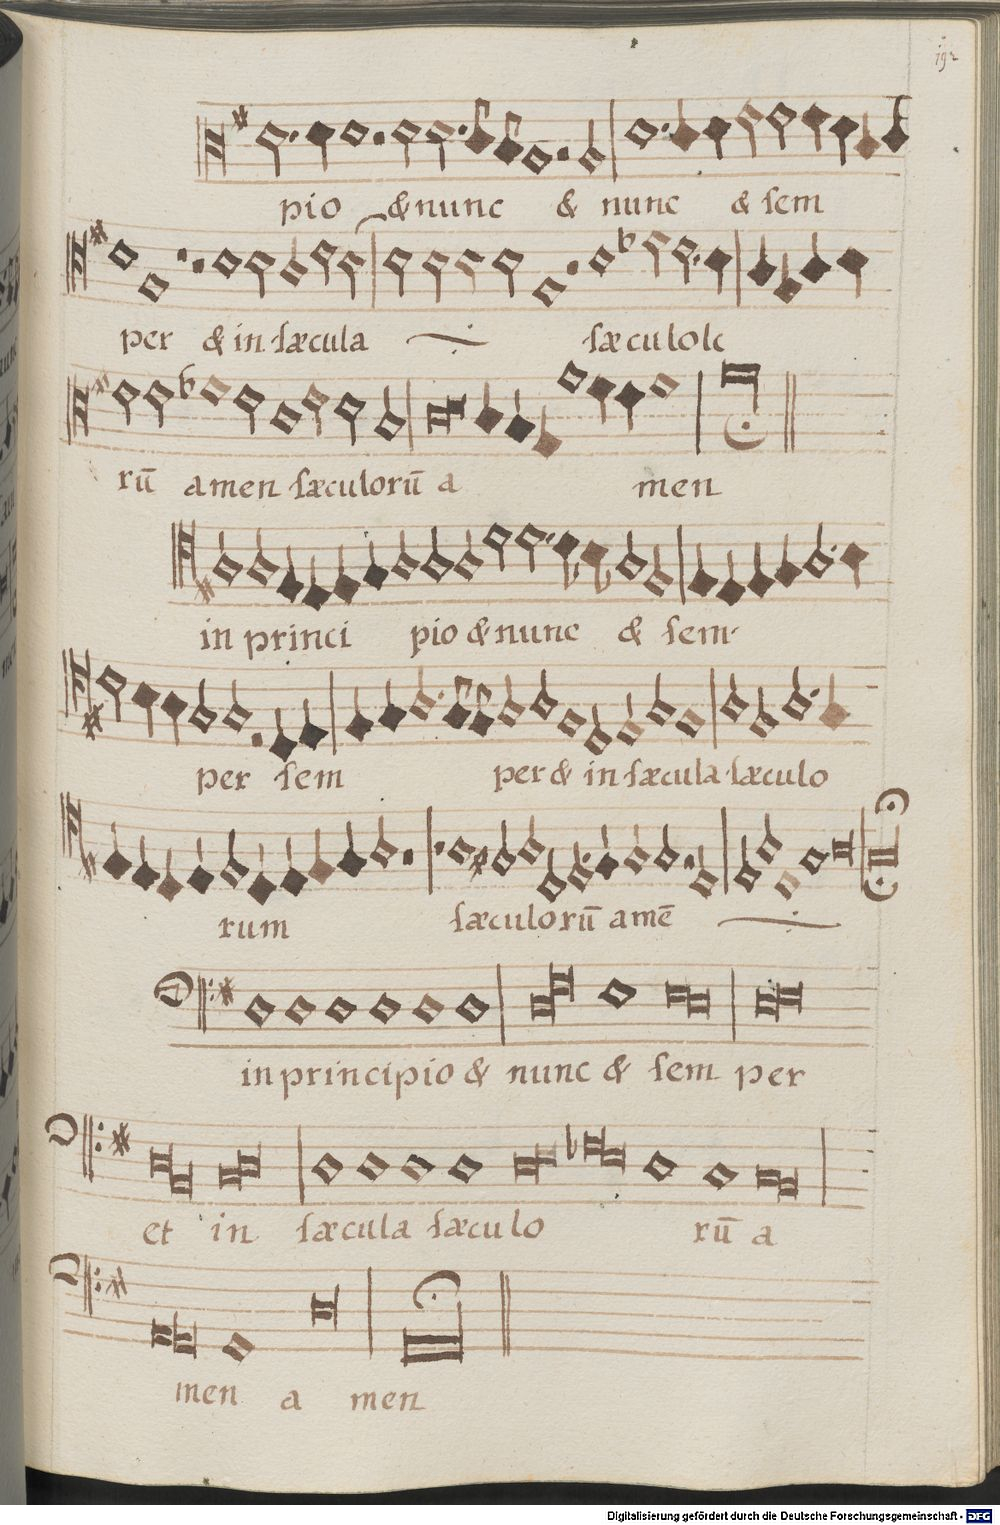 192
pio & nunc & nunc & sem
per & in sæcula sæculolo
rū amen sæculorū a men
in princi pio & nunc & sem
per sem per & in sæcula sæculo
rum sæculorū amē
in principio & nunc & sem per
et in sæcula sæculo rū a
men a men
Digitalisierung gefördert durch die Deutsche Forschungsgemeinschaft - DFG